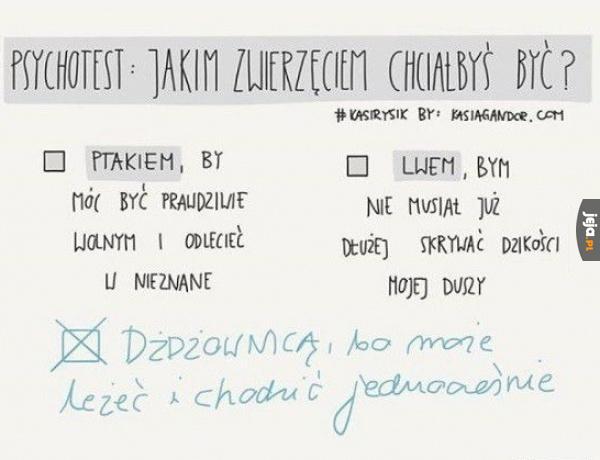 PSYCHOTEST: JAKIM ZWIERZĘCIEM CHCIAŁBYŚ BYĆ?
#KASIRYSIK BY: KASIAGANDOR.COM
PTAKIEM, BY
MÓC BYĆ PRAWDZIWIE
WOLNYM I ODLECIEĆ
W NIEZNANE
LWEM, BYM
NIE MUSIAŁ JUŻ
DŁUŻEJ SKRYWAĆ DZIKOŚCI
MOJEJ DUSZY
DŻDŻOWNICĄ, bo może
leżeć i chodzić jednocześnie
jeja.pl